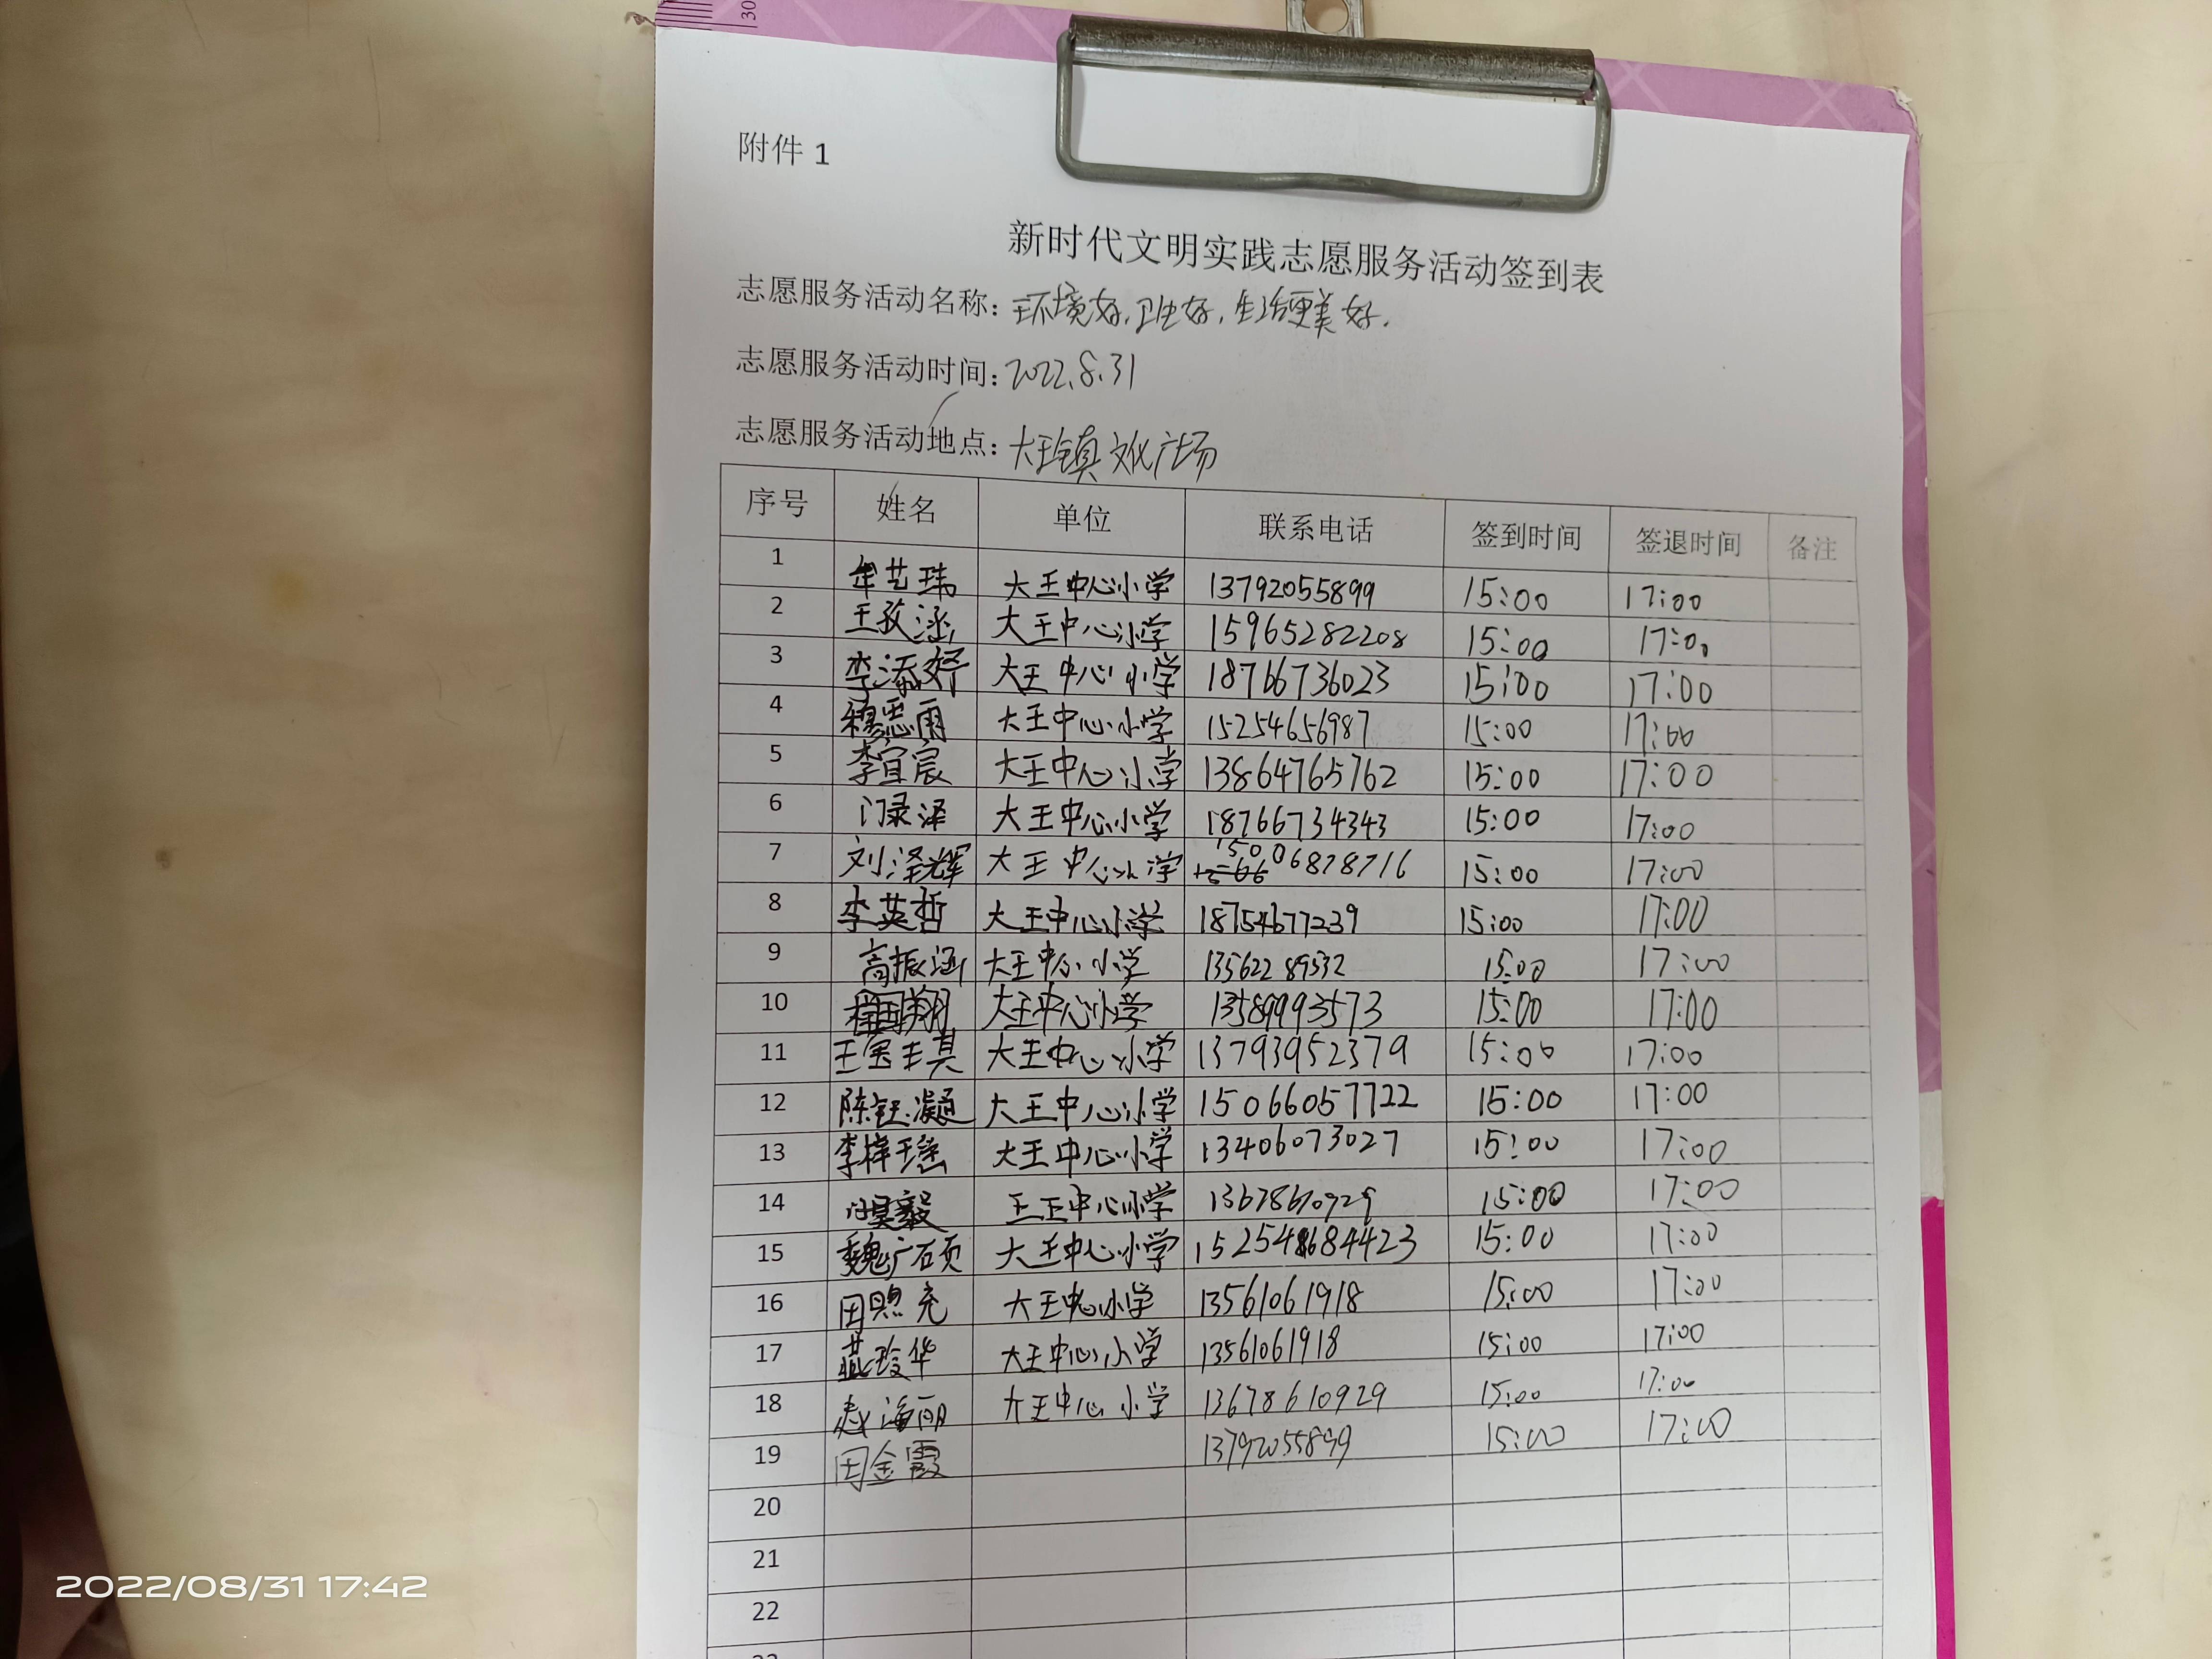 30
附件 1
新时代文明实践志愿服务活动签到表
志愿服务活动名称：环境好，卫生好，生活更美好.
志愿服务活动时间：2022.8.31
志愿服务活动地点：大王镇文化广场
序号 姓名 单位 联系电话 签到时间 签退时间 备注
1 牟艺玮 大王中心小学 13792055899 15:00 17:00
2 王孜涵 大王中心小学 15965282208 15:00 17:00
3 李添妤 大王中心小学 18766736023 15:00 17:00
4 穆思雨 大王中心小学 15254656987 15:00 17:00
5 李宜宸 大王中心小学 13864765762 15:00 17:00
6 门录泽 大王中心小学 18766734343 15:00 17:00
7 刘泽辉 大王中心小学 15006878716 15:00 17:00
8 李英哲 大王中心小学 18754677239 15:00 17:00
9 高振涵 大王中心小学 13562289532 15:00 17:00
10 大王中心小学 13589993573 15:00 17:00
11 王宝琪 大王中心小学 13793952379 15:00 17:00
12 陈钰凝 大王中心小学 15066057722 15:00 17:00
13 李梓瑶 大王中心小学 13406073027 15:00 17:00
14 中心小学 15:00 17:00
15 魏广硕 大王中心小学 15:00 17:00
16 田照充 大王中心小学 13561061918 15:00 17:00
17 燕玲华 大王中心小学 13561061918 15:00 17:00
18 赵海丽 大王中心小学 13678610929 15:00 17:00
19 田金霞 13792055899 15:00 17:00
20
21
22
2022/08/31 17:42